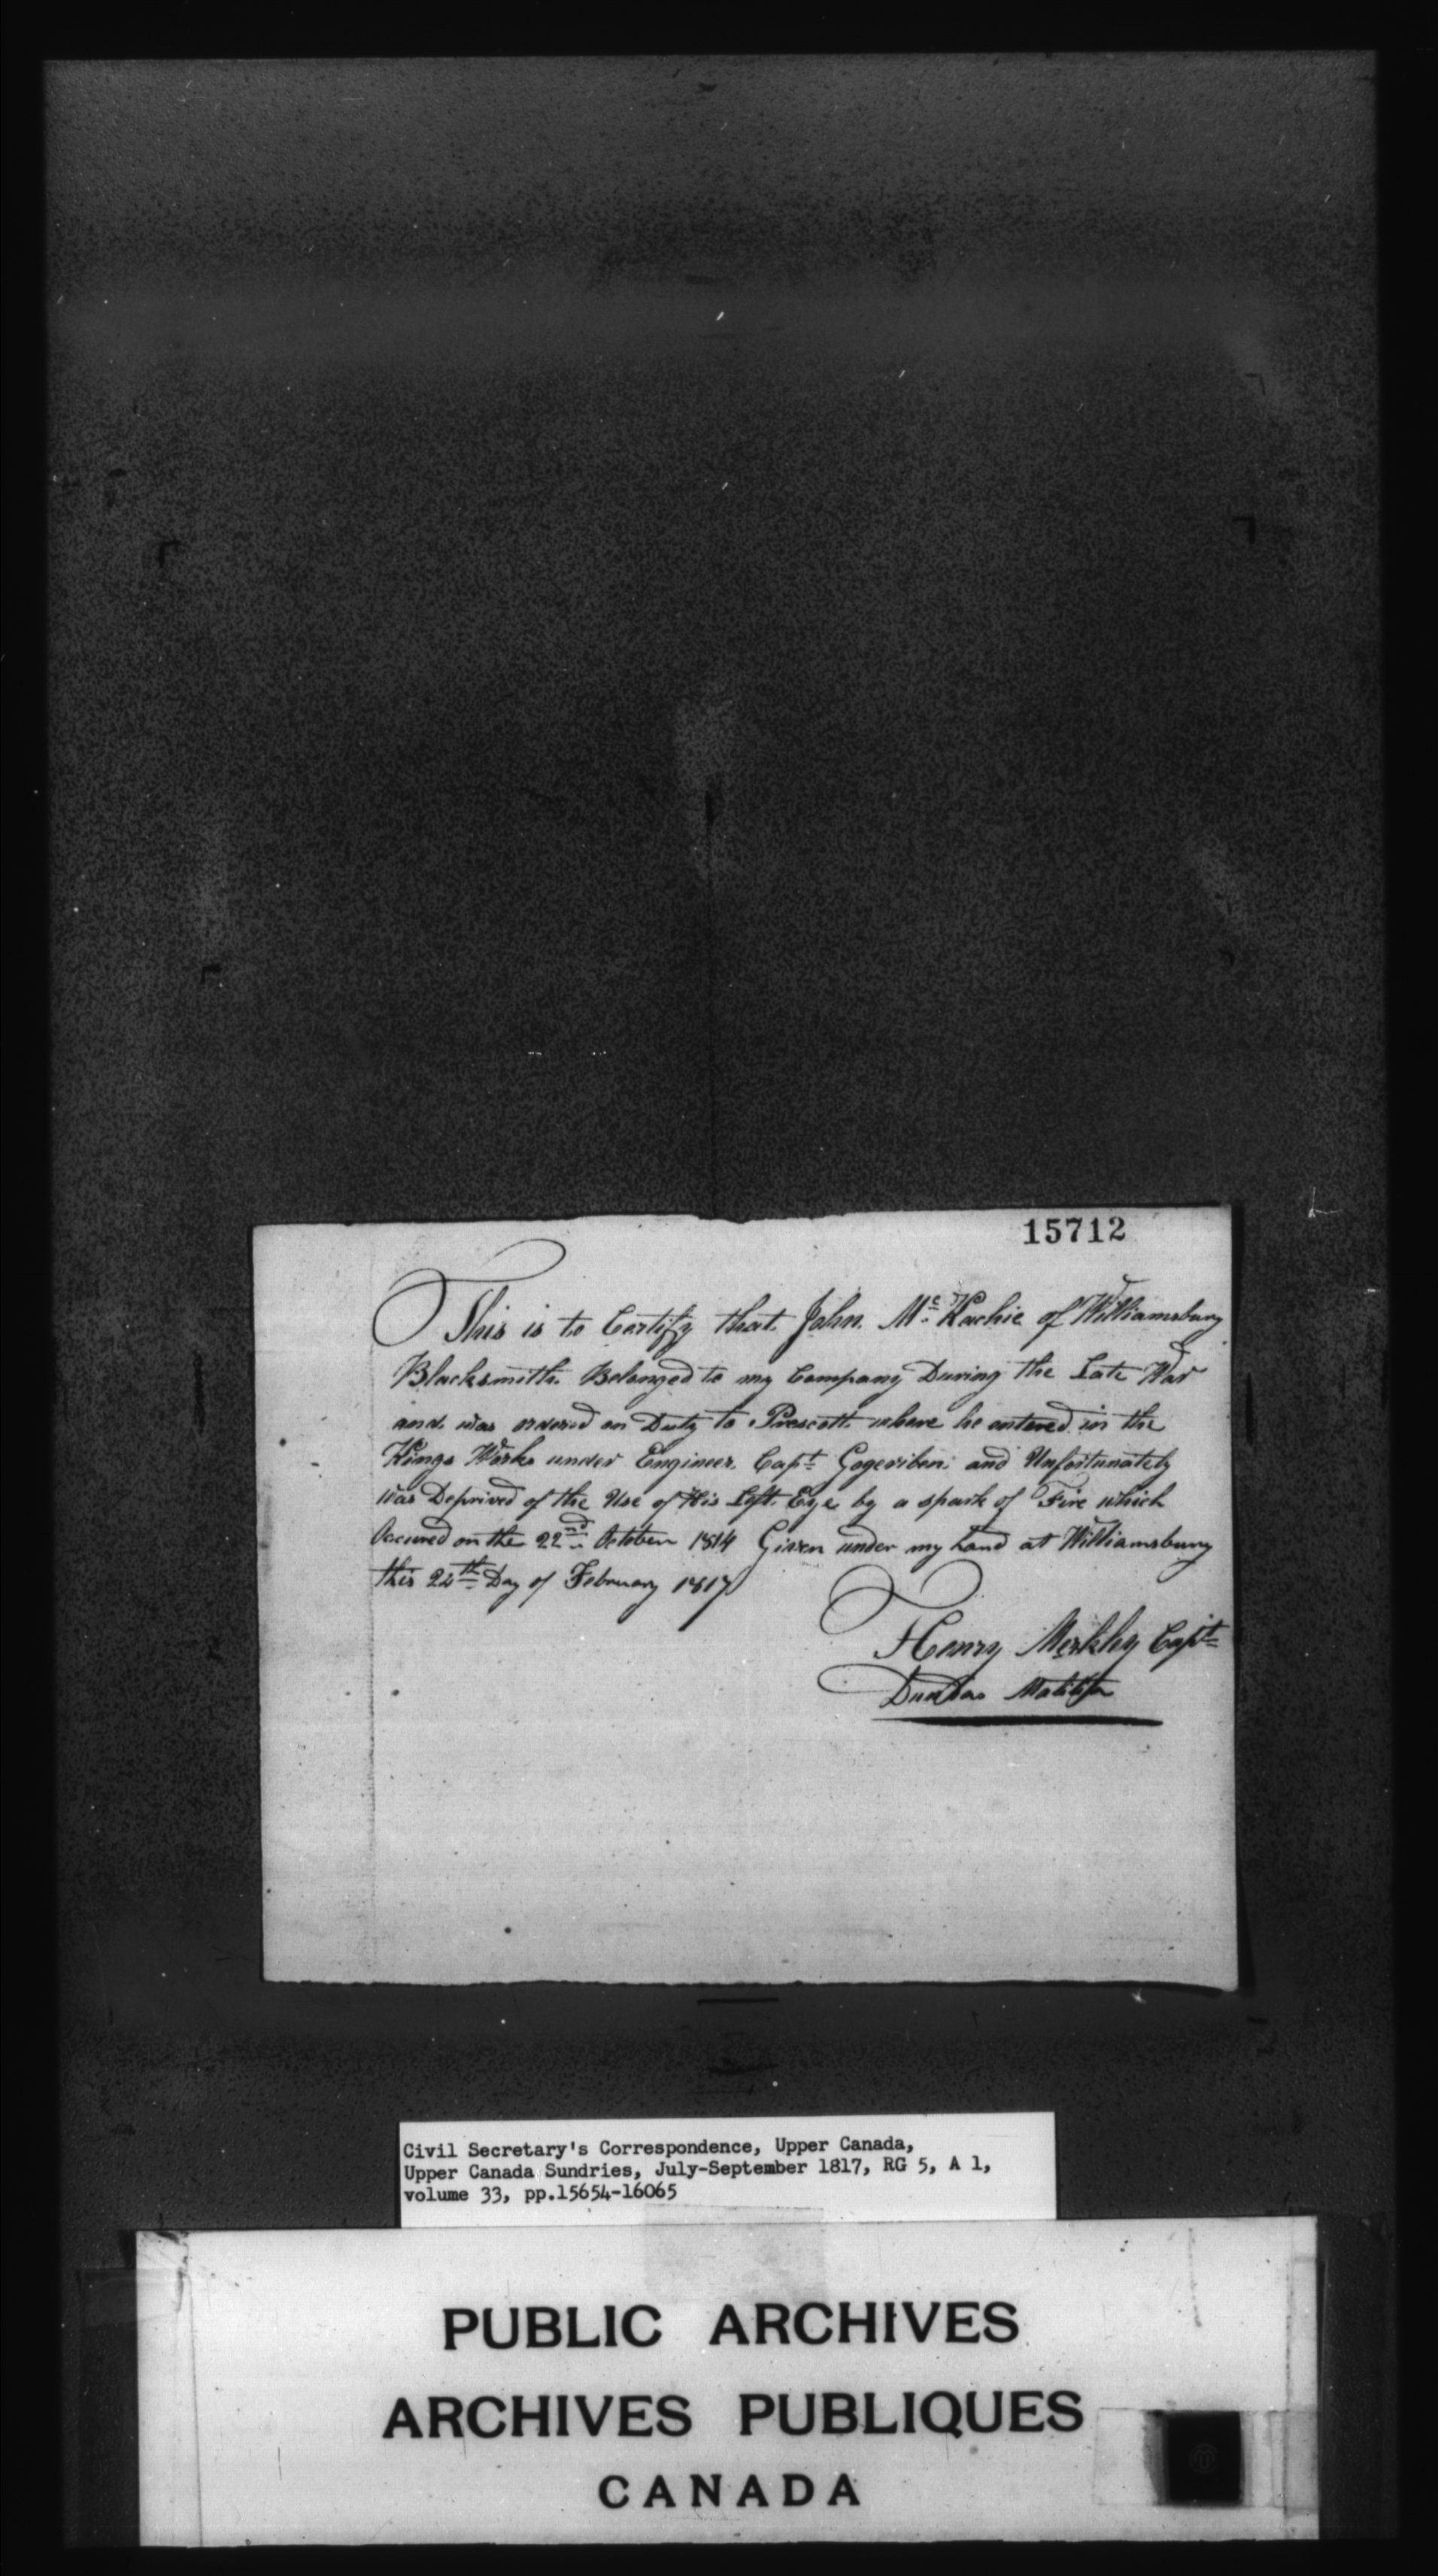 15712
This is to Certify that John Mc Kachie of Williamsburg
Blacksmith Belonged to my Company During the Late War
and was ordered on Duty to Prescott where he entered in the
Kings Works under Engineer Capt and Unfortunately
was Deprived of the Use of His Left Eye by a spark of Fire which
Occured on the 22nd October 1814 Given under my hand at Williamsburg
this 24th Day of February 1817
Henry Merkley Capt
Dundas Malitia
Civil Secretary's Correspondence, Upper Canada,
Upper Canada Sundries, July-September 1817, RG 5, A 1,
volume 33, pp.15654-16065
PUBLIC ARCHIVES
ARCHIVES PUBLIQUES
CANADA